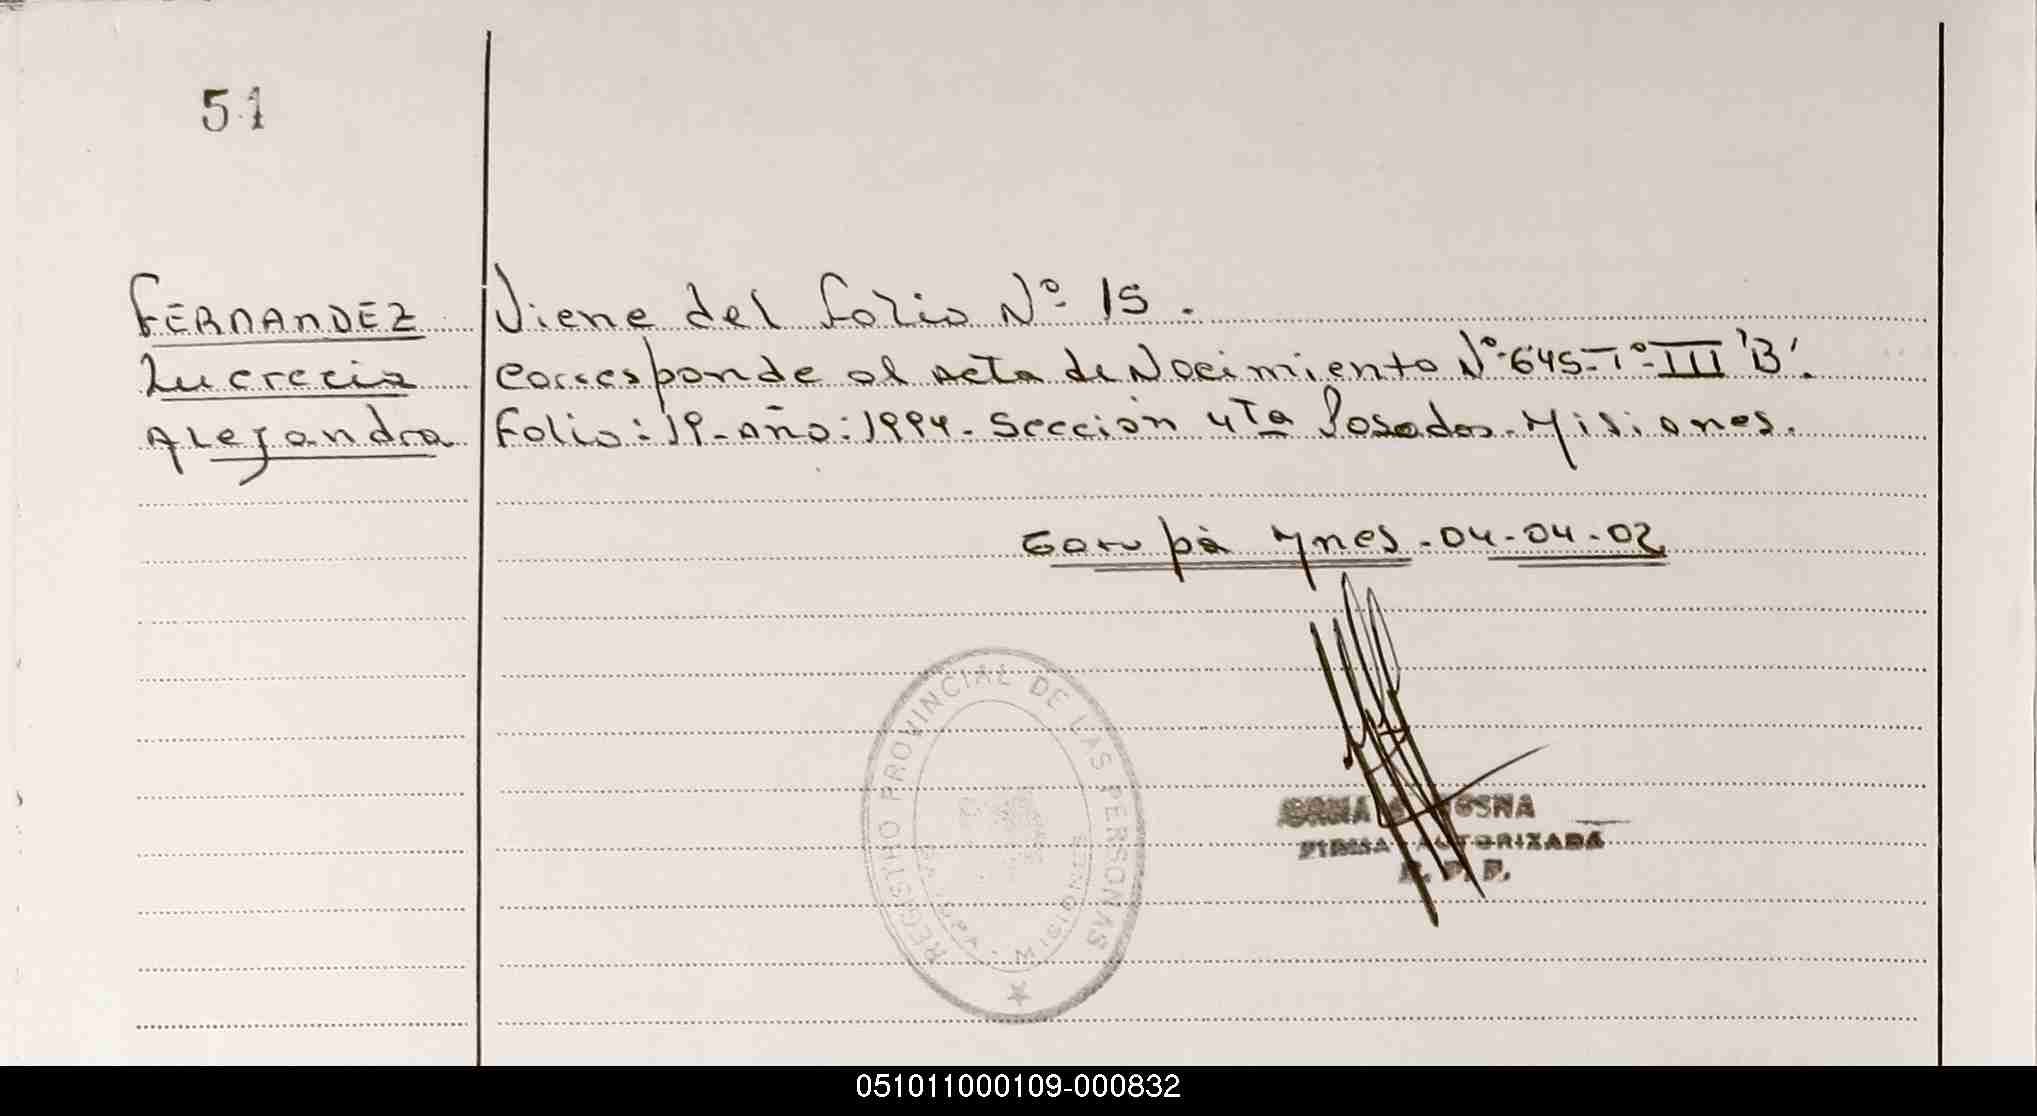 51
FERNANDEZ
Lucrecia
Alejandra
Viene del folio Nº 15.
Corresponde al acta de Nacimiento Nº 645-Tº-III 'B'.
folio: 19-año: 1994. Sección 4Ta Posadas-Misiones.
Garupá Mnes.-04-04-02
REGISTRO PROVINCIAL DE LAS PERSONAS
MISIONES
FIRMA AUTORIZADA
R. P. P.
051011000109-000832